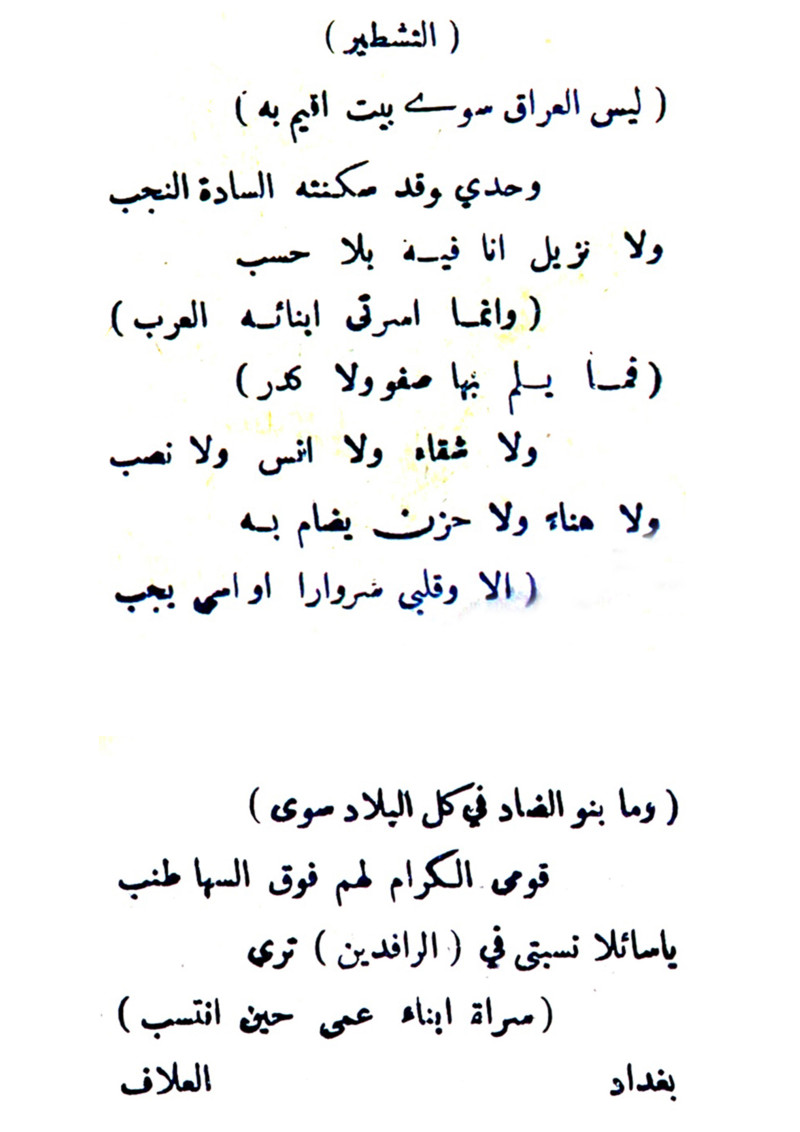 ( التشطير )
( ليس العراق سوى بيت اقيم به )
وحدي وقد سكنته السادة النجب
ولا نزيل انا فيـه بلا حسب
( وانمـا اسرتي ابنائـه العرب )
( فمـا يـلم بها صفو ولا كدر )
ولا شقاء ولا انس ولا نصب
ولا هناء ولا حزن يضام بـه
( الا وقلبي سروارا او اسى يجب
( وما بنو الضاد في كل البلاد سوى )
قومي الكرام لهم فوق السها طنب
ياسائلا نسبتي في ( الرافدين ) ترى
( سراة ابناء عمي حين انتسب )
بغداد العلاف